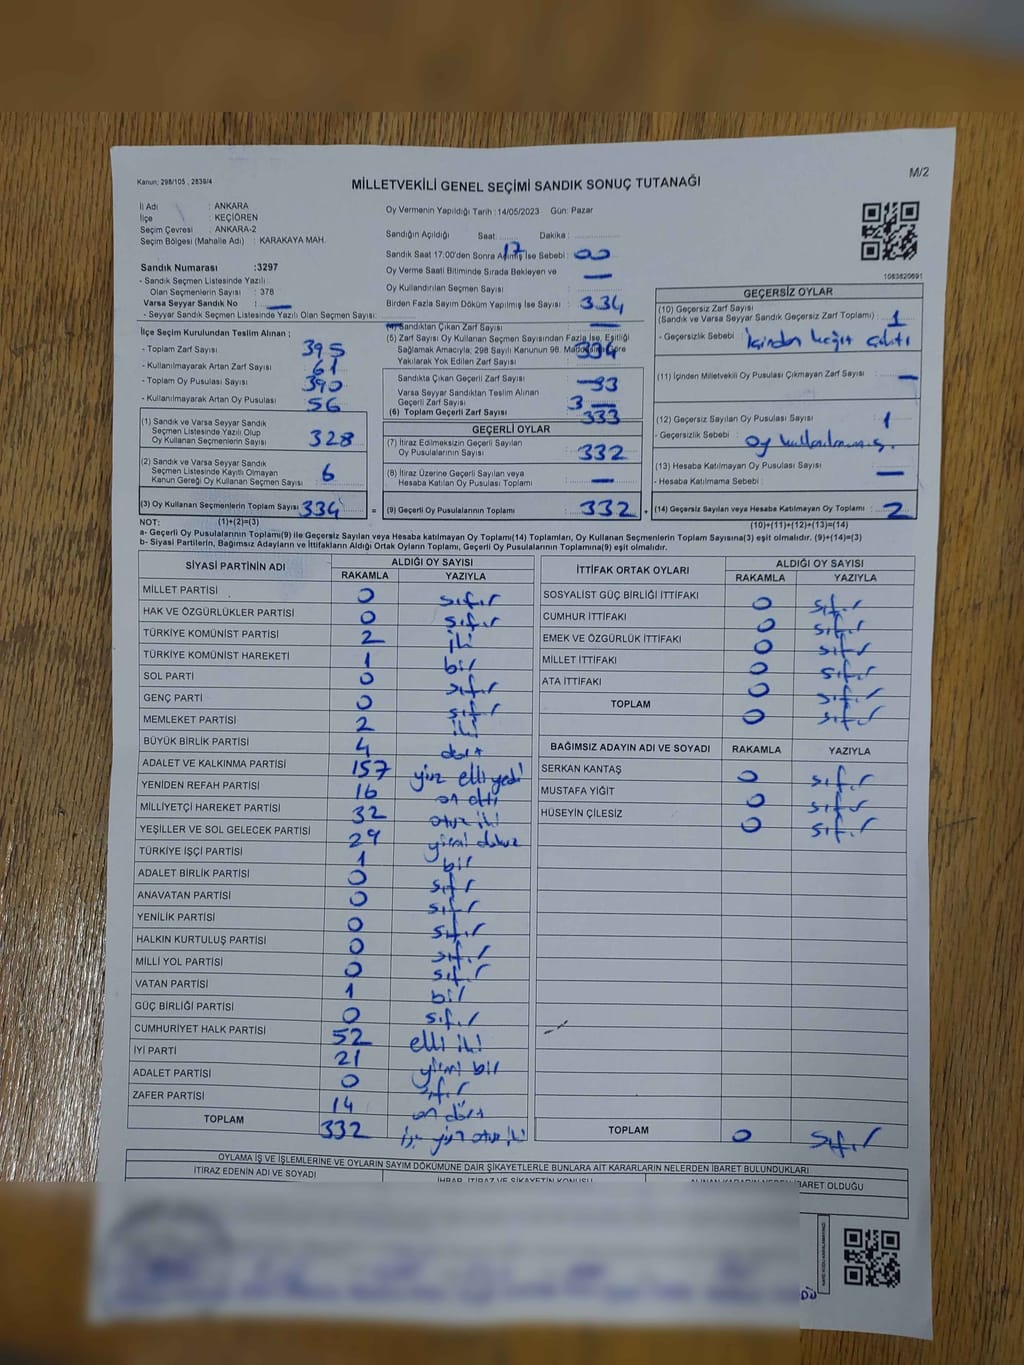 Kanun: 298/105 , 2839/4
MİLLETVEKİLİ GENEL SEÇİMİ SANDIK SONUÇ TUTANAĞI
M/2
İl Adı : ANKARA
İlçe : KEÇİÖREN
Seçim Çevresi : ANKARA-2
Seçim Bölgesi (Mahalle Adı) : KARAKAYA MAH.
Sandık Numarası :3297
- Sandık Seçmen Listesinde Yazılı
Olan Seçmenlerin Sayısı : 378
Varsa Seyyar Sandık No : —
- Seyyar Sandık Seçmen Listesinde Yazılı Olan Seçmen Sayısı:
Oy Vermenin Yapıldığı Tarih :14/05/2023 Gün: Pazar
Sandığın Açıldığı Saat: 17 Dakika : 00
Sandık Saat 17:00'den Sonra Açılmış İse Sebebi :
Oy Verme Saati Bitiminde Sırada Bekleyen ve —
Oy Kullandırılan Seçmen Sayısı :
Birden Fazla Sayım Döküm Yapılmış İse Sayısı : 334
1083820691
İlçe Seçim Kurulundan Teslim Alınan ;
- Toplam Zarf Sayısı 395
- Kullanılmayarak Artan Zarf Sayısı 61
- Toplam Oy Pusulası Sayısı 390
- Kullanılmayarak Artan Oy Pusulası 56
(1) Sandık ve Varsa Seyyar Sandık
Seçmen Listesinde Yazılı Olup
Oy Kullanan Seçmenlerin Sayısı : 328
(2) Sandık ve Varsa Seyyar Sandık
Seçmen Listesinde Kayıtlı Olmayan
Kanun Gereği Oy Kullanan Seçmen Sayısı : 6
(3) Oy Kullanan Seçmenlerin Toplam Sayısı : 334
(4) Sandıktan Çıkan Zarf Sayısı : —
(5) Zarf Sayısı Oy Kullanan Seçmen Sayısından Fazla İse, Eşitliği
Sağlamak Amacıyla; 298 Sayılı Kanunun 98. Maddesine Göre 334
Yakılarak Yok Edilen Zarf Sayısı :
Sandıkta Çıkan Geçerli Zarf Sayısı
Varsa Seyyar Sandıktan Teslim Alınan
Geçerli Zarf Sayısı
(6) Toplam Geçerli Zarf Sayısı : 333
GEÇERLİ OYLAR
(7) İtiraz Edilmeksizin Geçerli Sayılan
Oy Pusulalarının Sayısı : 332
(8) İtiraz Üzerine Geçerli Sayılan veya
Hesaba Katılan Oy Pusulası Toplamı : —
= (9) Geçerli Oy Pusulalarının Toplamı : 332 +
GEÇERSİZ OYLAR
(10) Geçersiz Zarf Sayısı
(Sandık ve Varsa Seyyar Sandık Geçersiz Zarf Toplamı) : 1
- Geçersizlik Sebebi : İçinden kağıt çıktı
(11) İçinden Milletvekili Oy Pusulası Çıkmayan Zarf Sayısı : —
(12) Geçersiz Sayılan Oy Pusulası Sayısı : 1
- Geçersizlik Sebebi : oy kullanılmamış.
(13) Hesaba Katılmayan Oy Pusulası Sayısı : —
- Hesaba Katılmama Sebebi :
(14) Geçersiz Sayılan veya Hesaba Katılmayan Oy Toplamı : 2
NOT: (1)+(2)=(3) (10)+(11)+(12)+(13)=(14)
a- Geçerli Oy Pusulalarının Toplamı(9) ile Geçersiz Sayılan veya Hesaba katılmayan Oy Toplamı(14) Toplamları, Oy Kullanan Seçmenlerin Toplam Sayısına(3) eşit olmalıdır. (9)+(14)=(3)
b- Siyasi Partilerin, Bağımsız Adayların ve İttifakların Aldığı Ortak Oyların Toplamı, Geçerli Oy Pusulalarının Toplamına(9) eşit olmalıdır.
SİYASİ PARTİNİN ADI ALDIĞI OY SAYISI
RAKAMLA YAZIYLA
MİLLET PARTİSİ 0 sıfır
HAK VE ÖZGÜRLÜKLER PARTİSİ 0 sıfır
TÜRKİYE KOMÜNİST PARTİSİ 2 iki
TÜRKİYE KOMÜNİST HAREKETİ 1 bir
SOL PARTİ 0 sıfır
GENÇ PARTİ 0 sıfır
MEMLEKET PARTİSİ 2 iki
BÜYÜK BİRLİK PARTİSİ 4 dört
ADALET VE KALKINMA PARTİSİ 157 yüz elli yedi
YENİDEN REFAH PARTİSİ 16 on altı
MİLLİYETÇİ HAREKET PARTİSİ 32 otuz iki
YEŞİLLER VE SOL GELECEK PARTİSİ 29 yirmi dokuz
TÜRKİYE İŞÇİ PARTİSİ 1 bir
ADALET BİRLİK PARTİSİ 0 sıfır
ANAVATAN PARTİSİ 0 sıfır
YENİLİK PARTİSİ 0 sıfır
HALKIN KURTULUŞ PARTİSİ 0 sıfır
MİLLİ YOL PARTİSİ 0 sıfır
VATAN PARTİSİ 1 bir
GÜÇ BİRLİĞİ PARTİSİ 0 sıfır
CUMHURİYET HALK PARTİSİ 52 elli iki
İYİ PARTİ 21 yirmi bir
ADALET PARTİSİ 0 sıfır
ZAFER PARTİSİ 14 on dört
TOPLAM 332 üç yüz otuz iki
İTTİFAK ORTAK OYLARI ALDIĞI OY SAYISI
RAKAMLA YAZIYLA
SOSYALİST GÜÇ BİRLİĞİ İTTİFAKI 0 sıfır
CUMHUR İTTİFAKI 0 sıfır
EMEK VE ÖZGÜRLÜK İTTİFAKI 0 sıfır
MİLLET İTTİFAKI 0 sıfır
ATA İTTİFAKI 0 sıfır
TOPLAM 0 sıfır
BAĞIMSIZ ADAYIN ADI VE SOYADI RAKAMLA YAZIYLA
SERKAN KANTAŞ 0 sıfır
MUSTAFA YİĞİT 0 sıfır
HÜSEYİN ÇİLESİZ 0 sıfır
TOPLAM 0 sıfır
OYLAMA İŞ VE İŞLEMLERİNE VE OYLARIN SAYIM DÖKÜMÜNE DAİR ŞİKAYETLERLE BUNLARA AİT KARARLARIN NELERDEN İBARET BULUNDUKLARI
İTİRAZ EDENİN ADI VE SOYADI İHBAR, İTİRAZ VE ŞİKAYETİN KONUSU ALINAN KARARIN NEDEN İBARET OLDUĞU